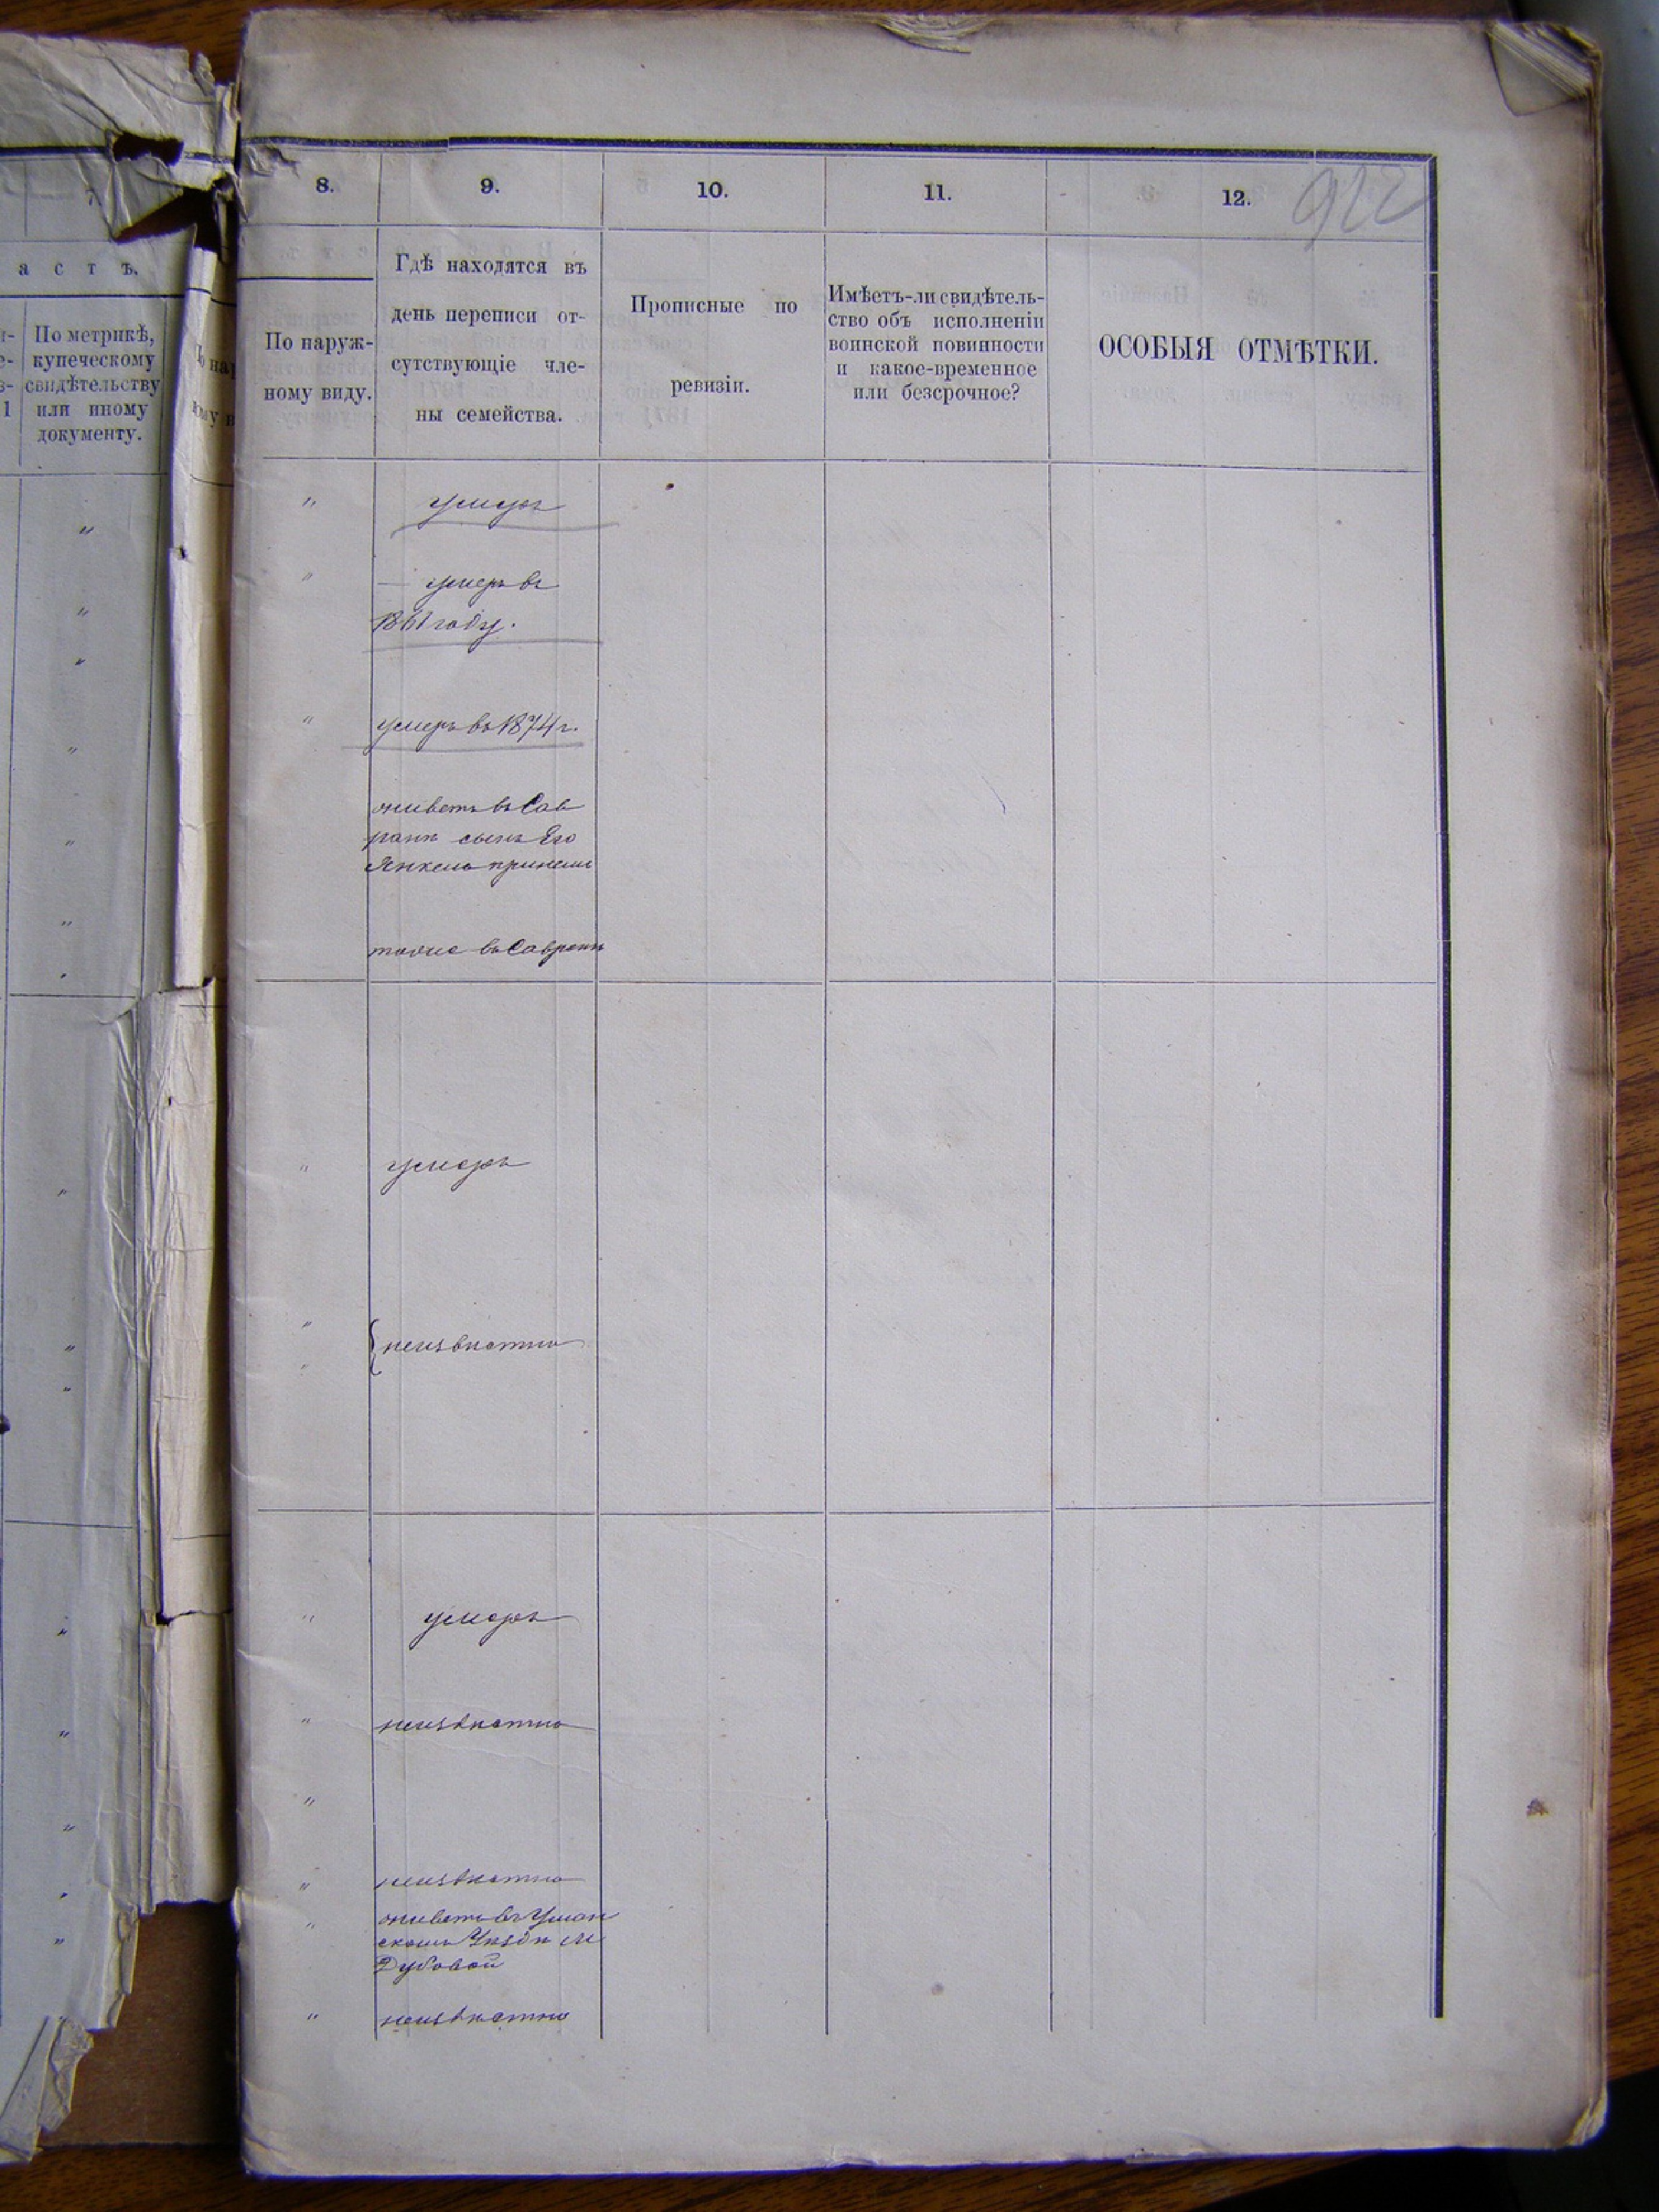 922
8.
9.
10.
11.
12.
а с т ъ.
По метрикѣ,
купеческому
свидѣтельству
или иному
документу.
По наруж-
ному виду.
Гдѣ находятся въ
день переписи от-
сутствующіе чле-
ны семейства.
Прописные по
ревизіи.
Имѣетъ-ли свидѣтель-
ство объ исполненіи
воинской повинности
и какое-временное
или безсрочное?
ОСОБЫЯ ОТМѢТКИ.
"
умеръ
"
— умеръ въ
1861 году.
"
умеръ въ 1874 г.
живетъ въ Сав
рани сынъ Его
Янкель
тоже въ Саврани
"
умеръ
"
"
неизвѣстно
"
умеръ
"
неизвѣстно
"
"
неизвѣстно
"
живетъ въ Уман
скомъ Уѣздѣ М
Дубовой
"
неизвѣстно